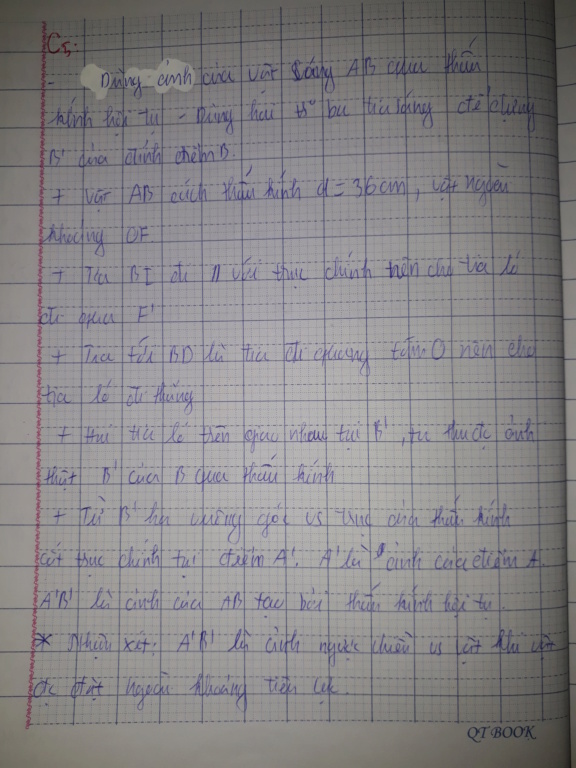 C5.
- Dựng ảnh của vật sáng AB qua thấu
kính hội tụ - Dùng hai tr ba tia sáng để dựng
B' của đỉnh điểm B.
+ Vật AB cách thấu kính d = 36cm, vật ngoài
khoảng OF
+ Tia BI đi // với trục chính nên cho tia ló
đi qua F'
+ Tia tới BO là tia đi quang tâm O nên cho
tia ló đi thẳng
+ Hai tia ló trên giao nhau tại B', ta thu đc ảnh
thật B' của B qua thấu kính
+ Từ B' hạ vuông góc vs trục của thấu kính
cắt trục chính tại điểm A'. A' là ảnh của điểm A.
A'B' là ảnh của AB tạo bởi thấu kính hội tụ.
* Nhận xét: A'B' là ảnh ngược chiều vs vật khi vật
đc đặt ngoài khoảng tiêu cự.
QT BOOK